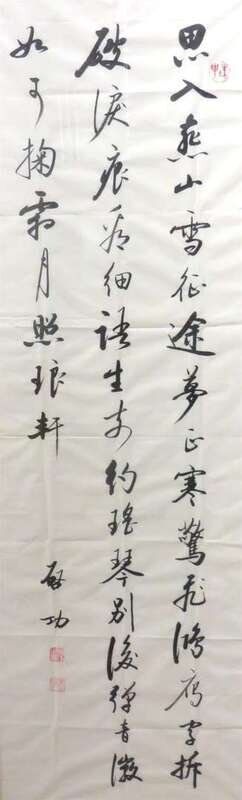 思入燕山雪征途夢正寒驚飛鴻雁字拆
破淚痕看細語生前約瑤琴別後彈音微
如可掬霜月照琅軒
啟功